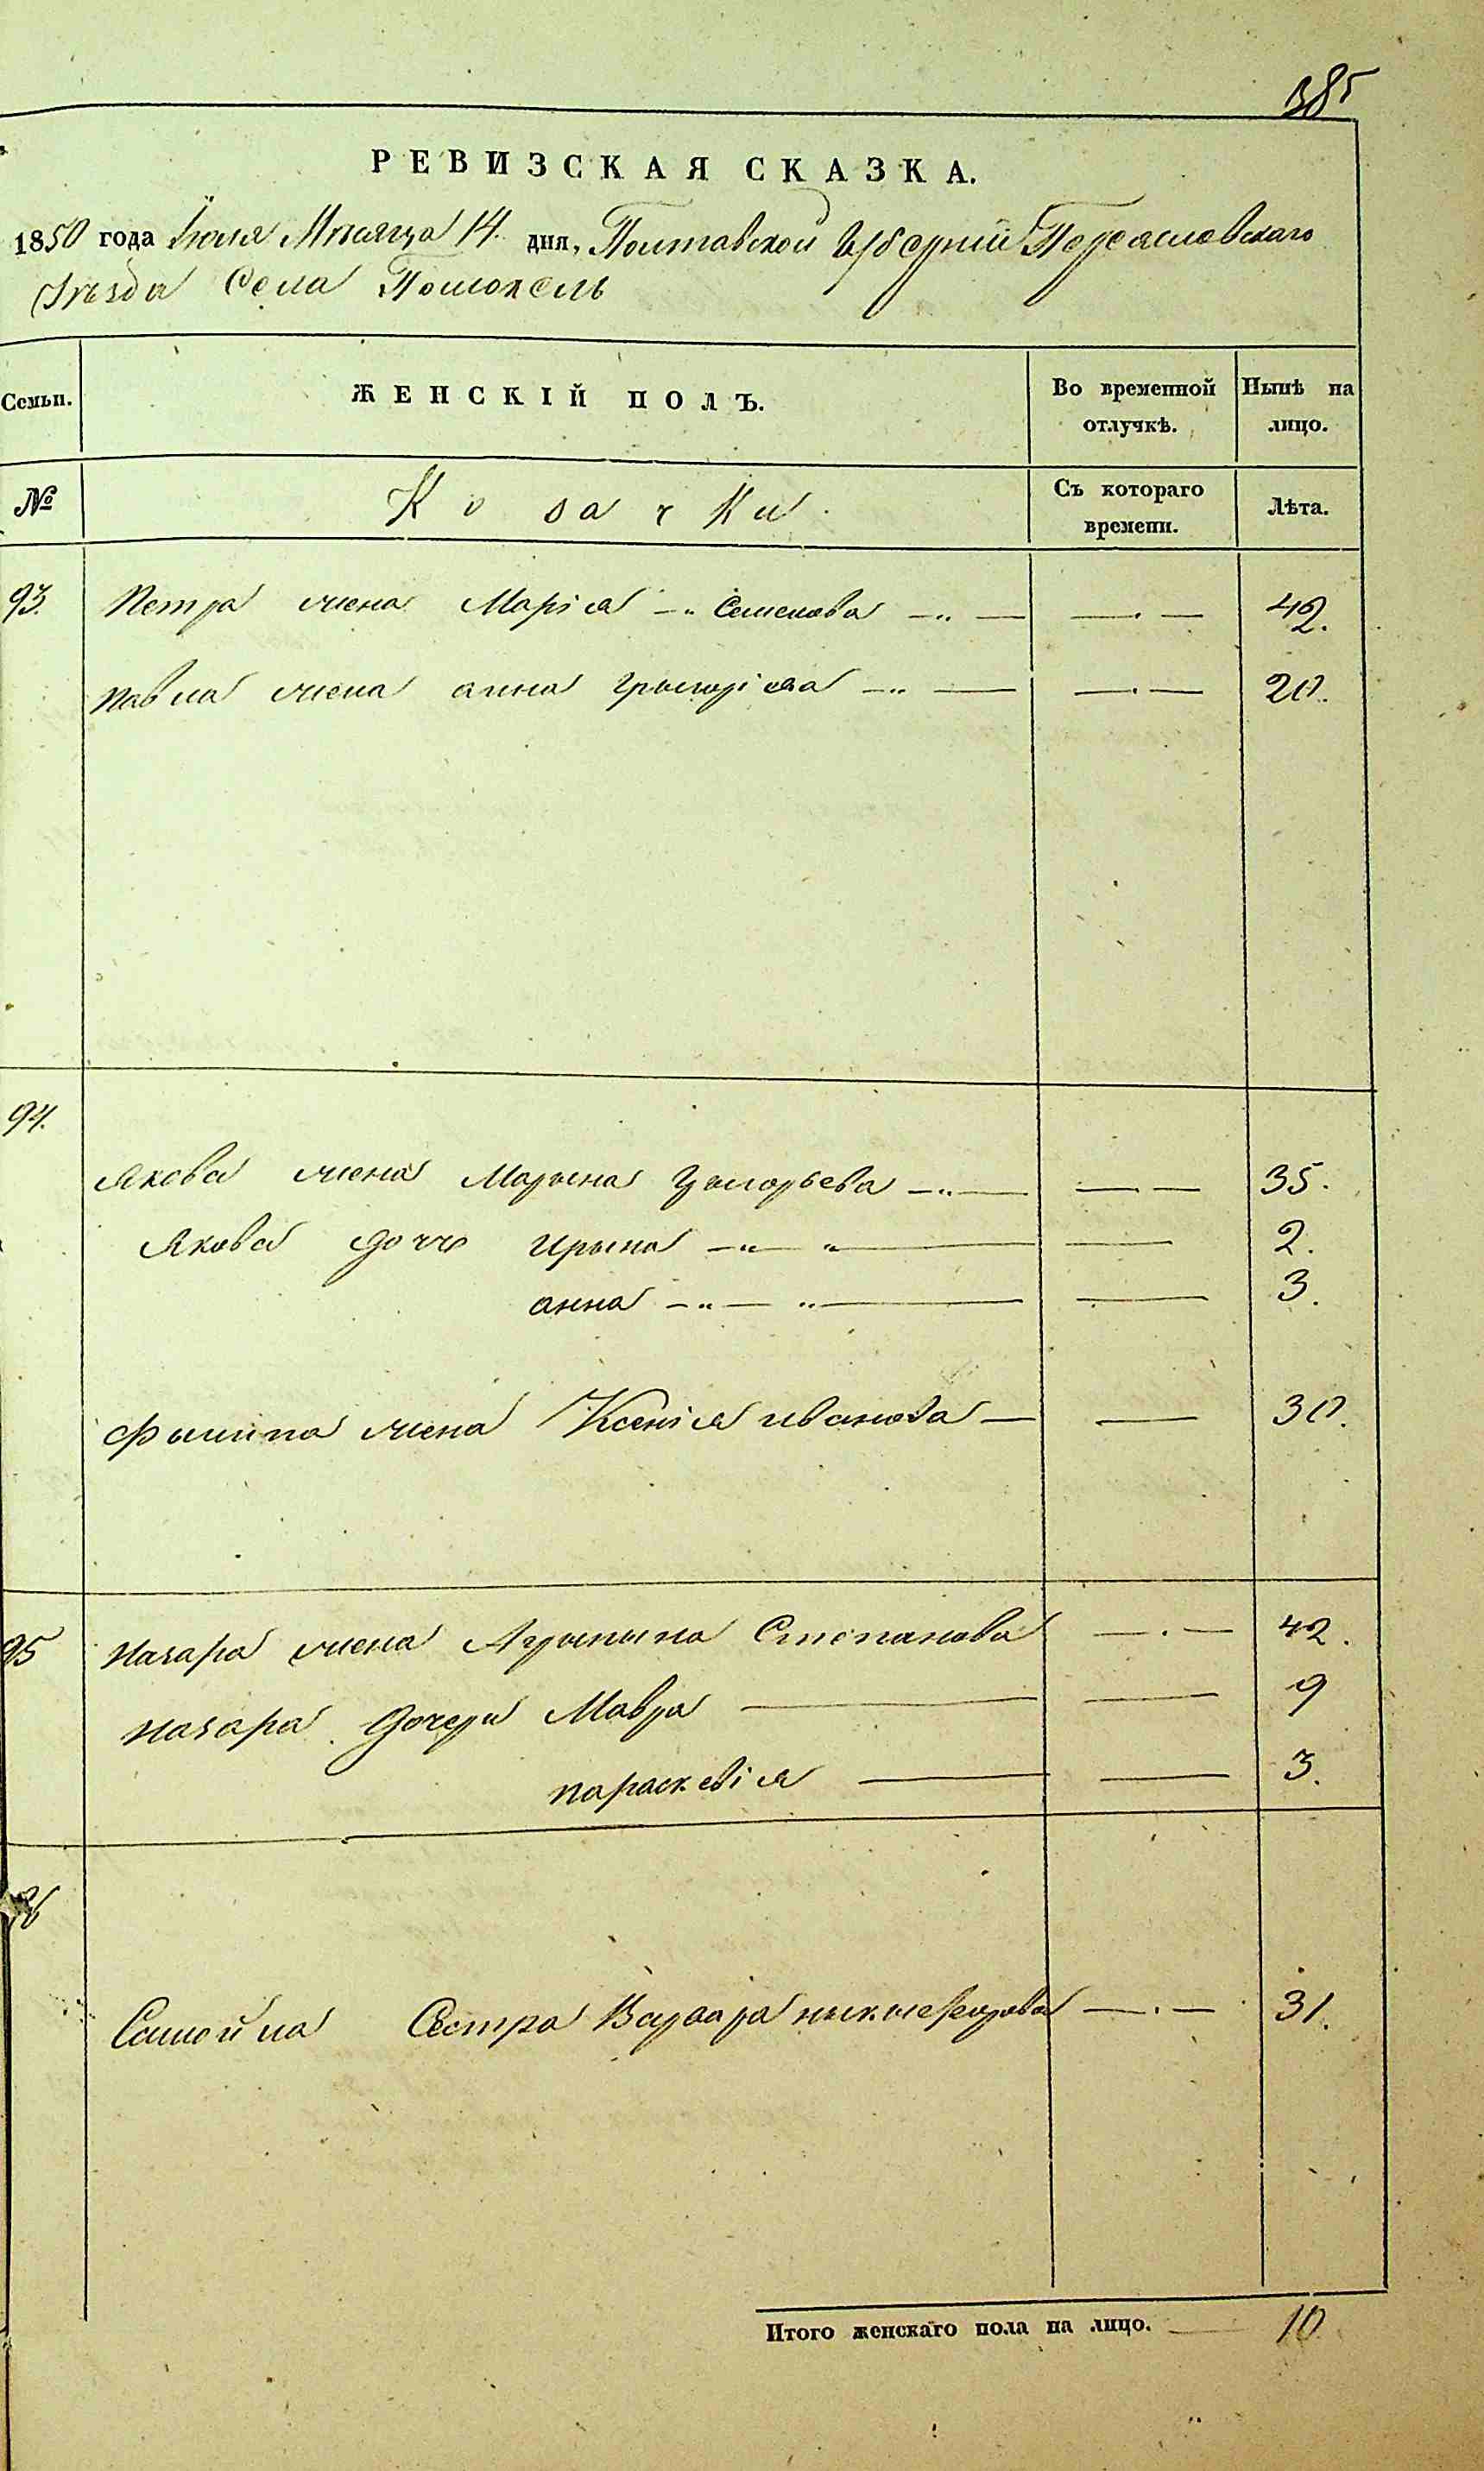 385
РЕВИЗСКАЯ СКАЗКА.
1850 года Іюля Мѣсяца 14 дня, Полтавской Губерніи Переясловскаго
Уѣзда Села Помокель
Семьи. ЖЕНСКІЙ ПОЛЪ. Во временной отлучкѣ. Нынѣ на лицо.
№ Козачки. Съ котораго времени. Лѣта.
93. Петра жена Марія Семенова 42.
Павла жена анна Григоріева 20.
94.
Якова жена Марына Григорьева 35.
Якова дочь Ирына 2.
анна 3.
Филипа жена Ксенія иванова 30.
95 Назара жена Агрыпына Степанова 42.
Назара дочери Мавра 9
параскевія 3.
96
Самойла Сестра Варвара 31.
Итого женскаго пола на лицо. 10